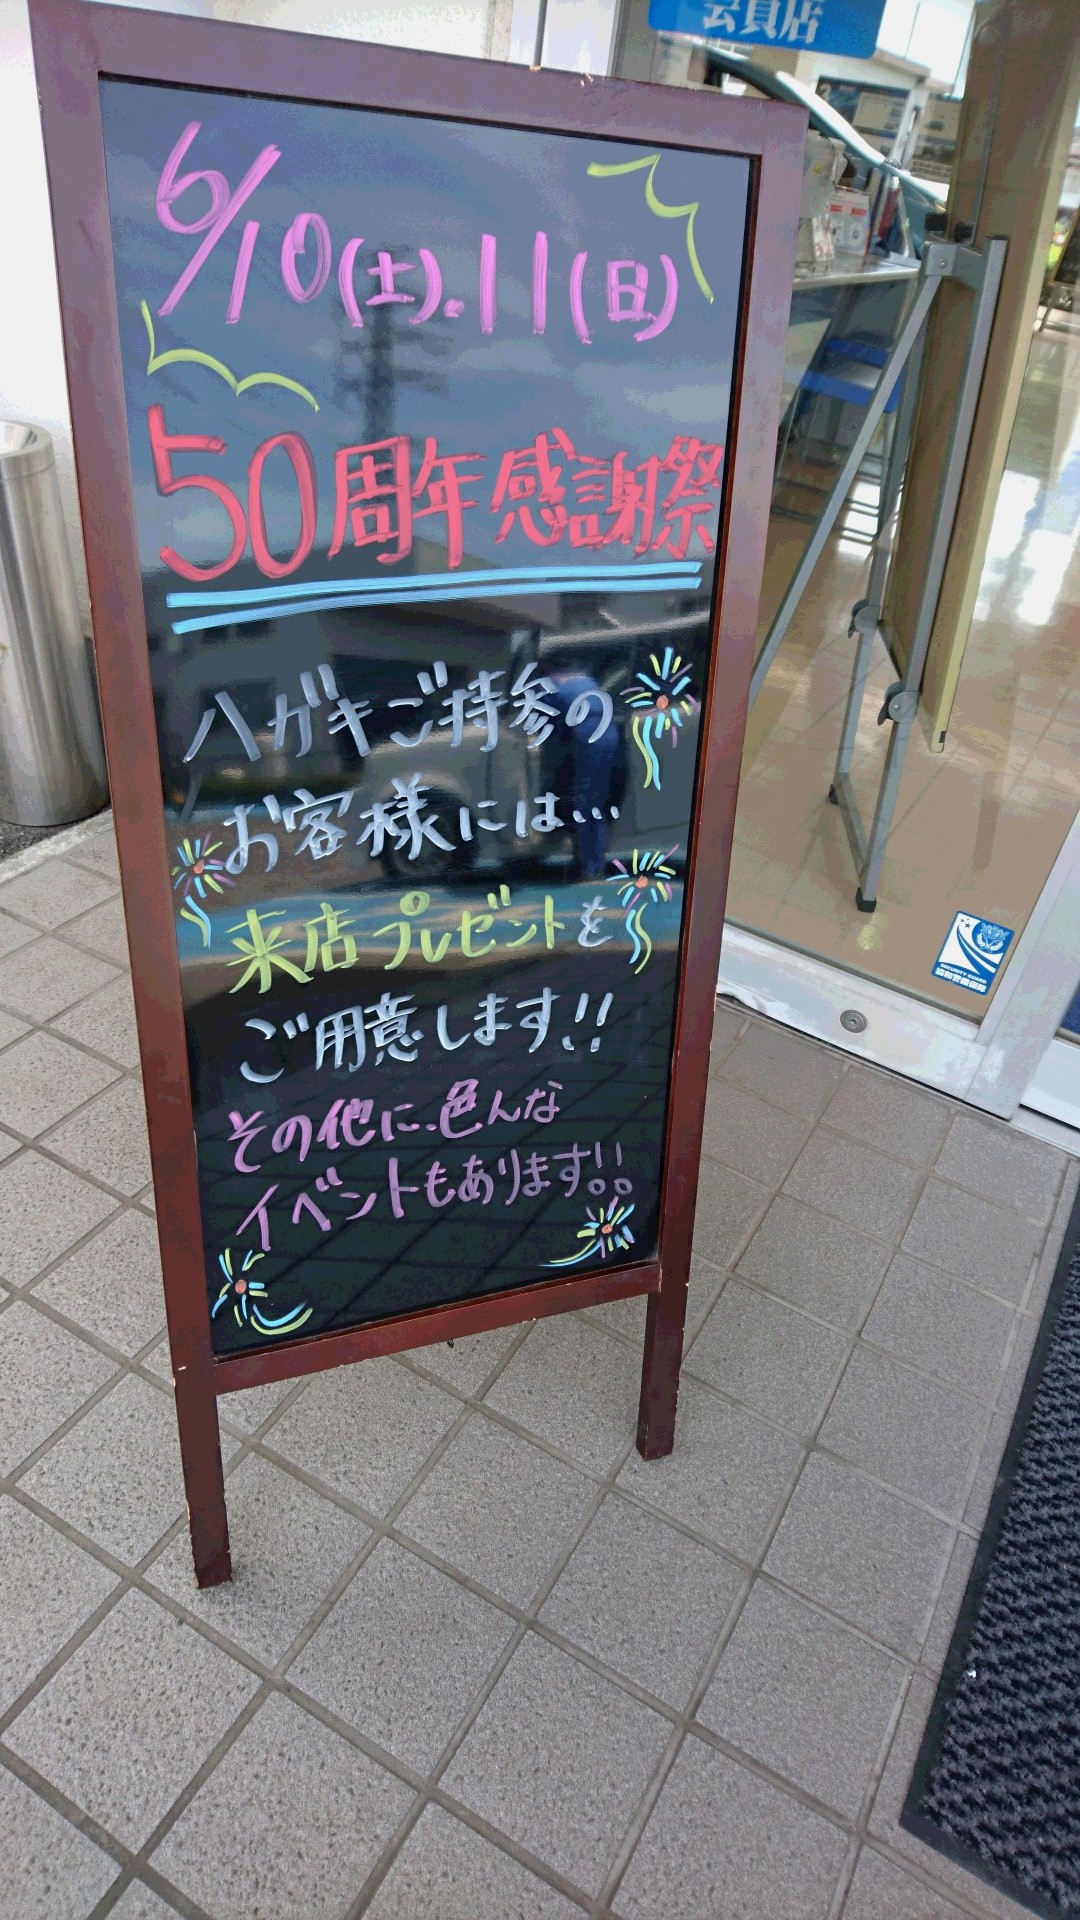 会員店
6/10(土).11(日)
50周年感謝祭
ハガキご持参の
お客様には…
来店プレゼントを
ご用意します!!
その他に、色んな
イベントもあります!!
SECURITY GUARD